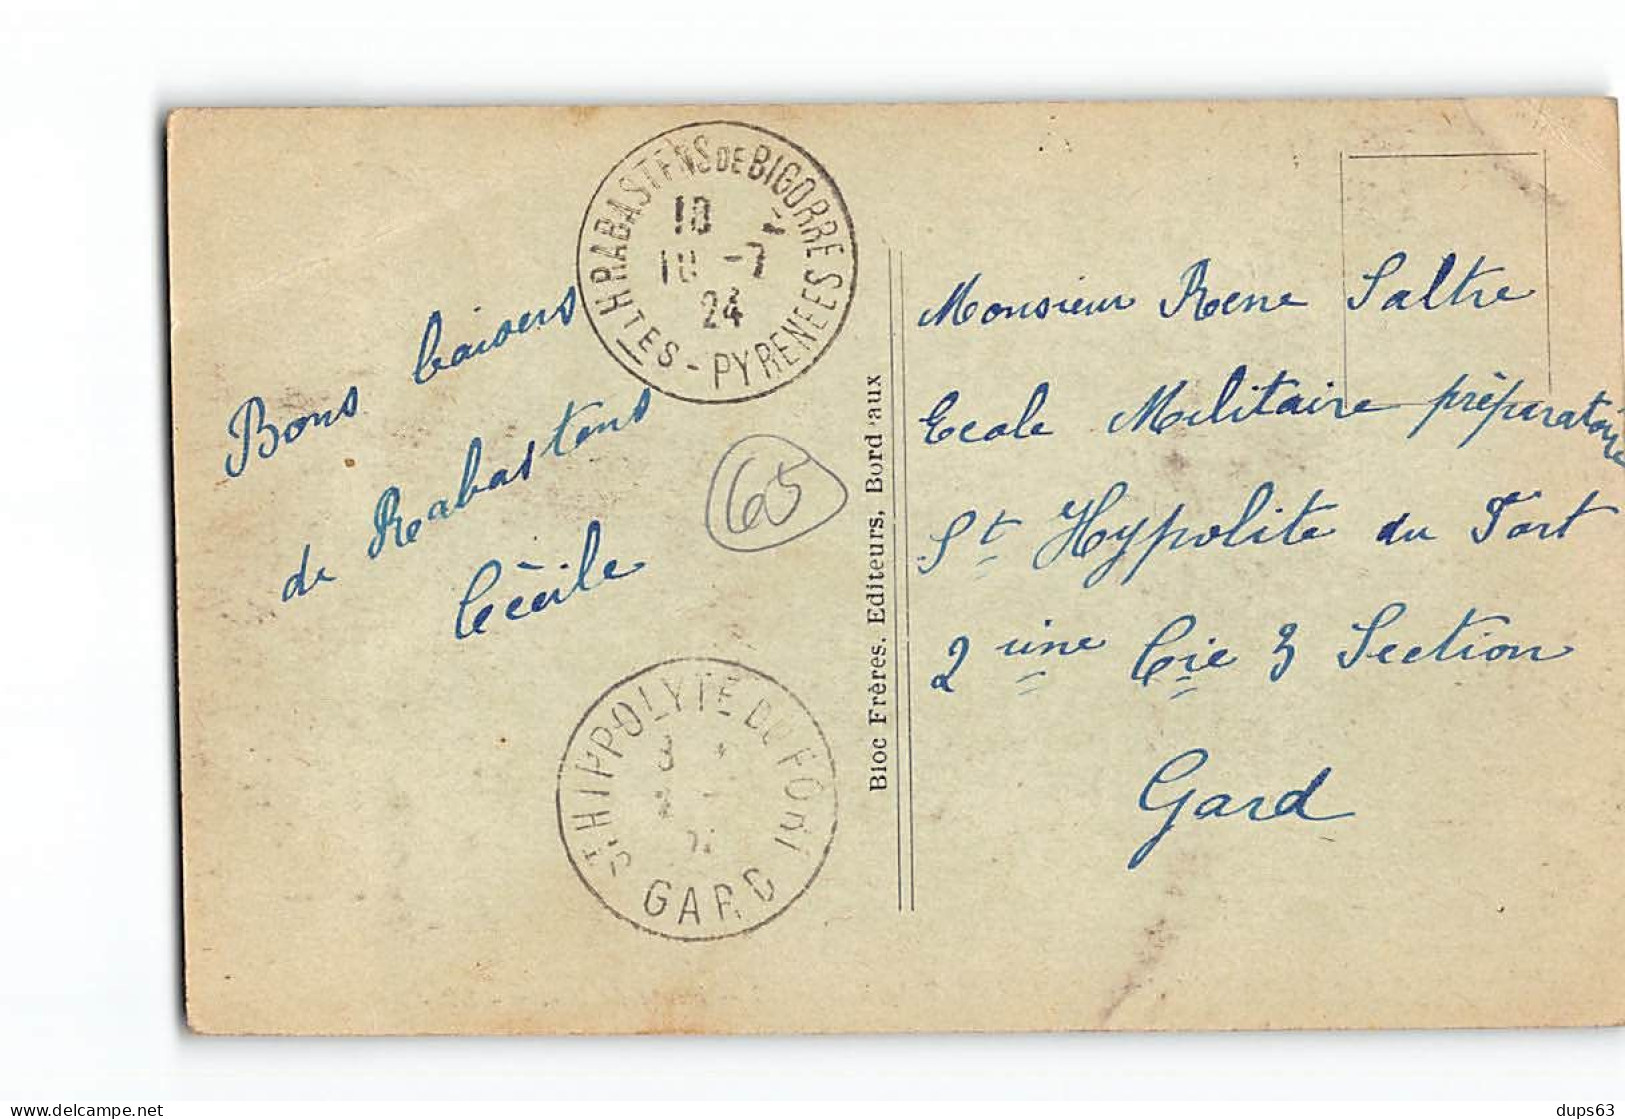 RABASTENS DE BIGORRE
18
10 -2
24
HTES-PYRENEES
Bons baisers
de Rabastens
Cécile
65
ST HIPPOLYTE DU FORT
GARD
Bloc Frères. Editeurs, Bord aux
Monsieur Rene Saltre
Ecole Militaire préparatoire
St Hypolite du Fort
2 ième Cie 3 Section
Gard
delcampe.net
dups63